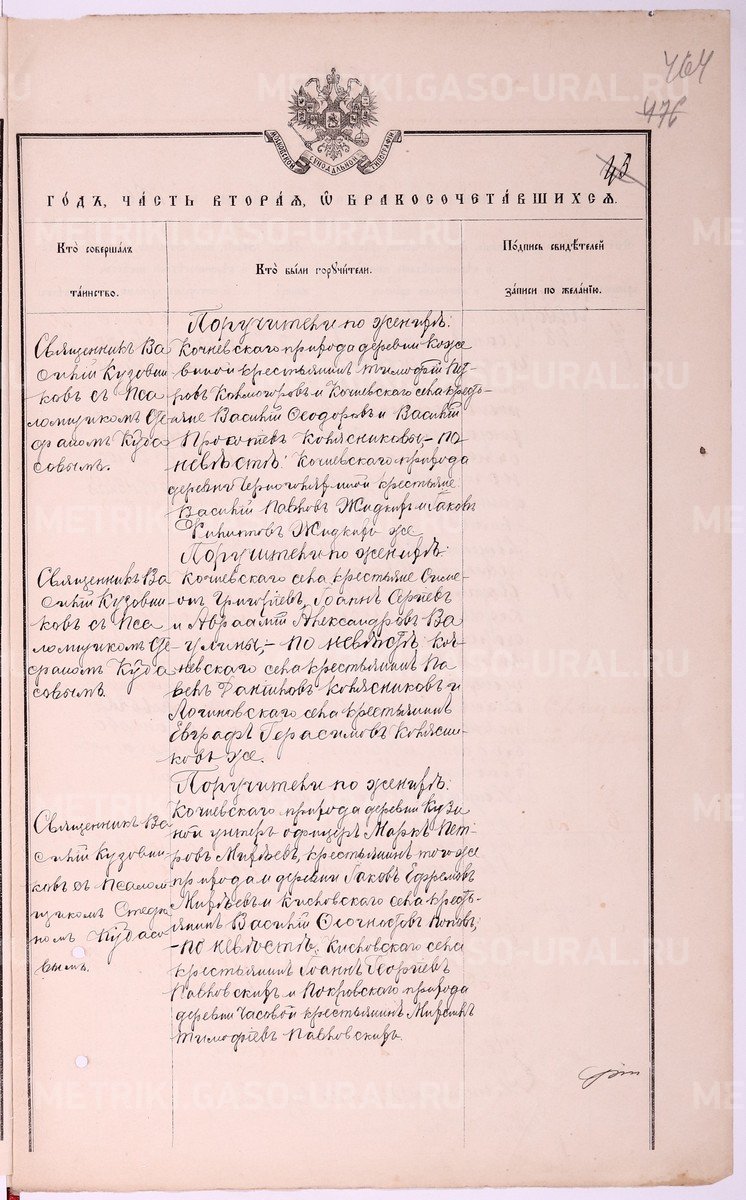 464
476
43
МОСКОВСКОЙ СѴНОДАЛЬНОЙ ТИПОГРАФІИ
ГО́ДЪ, ЧА́СТЬ ВТОРА́Я, Ѡ҆ БРАКОСОЧЕТА́ВШИХСЯ.
Кто̀ соверша́лъ
та́инство.
Кто̀ бы́ли порꙋчи́тели.
По́дпись свидѣ́телей
за́писи по жела́нїю.
Священникъ Ва
силій Кузовни
ковъ съ Пса
ломщикомъ Сте
фаномъ Кудасо
совымъ.
Поручители по женихѣ:
Кочневскаго прихода деревни Коже
виной крестьянинъ Тимофей Пет
ровъ Колмогоровъ и Кочневскаго села кресть-
яне Василій Ѳеодоровъ и Василій
Прокопіевъ Колясниковы; – по
невѣстѣ: Кочневскаго прихода
деревни крестьяне
Василій Павловъ Жидкихъ и Іаковъ
Филипповъ Жидкихъ же
Священникъ Ва
силій Кузовни
ковъ съ Пса
ломщикомъ Сте
фаномъ Куда
совымъ.
Поручители по женихѣ:
Кочневскаго села крестьяне Симе
онъ Григорьевъ, Іоаннъ Сергіевъ
и Авраамій Александровъ Ва
гулины; – по невѣстѣ: Коч
невскаго села крестьянинъ Па
Колясниковъ и
Логиновскаго села крестьянинъ
Евграфъ Герасимовъ Колясни
ковъ же.
Священникъ Ва
силій Кузовни
ковъ съ Псалом
щикомъ Стефа
номъ Кудасо
вымъ.
Поручители по женихѣ:
Кочневскаго прихода деревни Кузи
ной унтеръ офицеръ Маркъ Пет-
ровъ крестьянинъ того же
прихода и деревни Іаковъ Ефремовъ
и Кисловскаго села кресть-
янинъ Василій Поповъ;
– по невѣстѣ: Кисловскаго села
крестьянинъ Іоаннъ Георгіевъ
Павловскихъ и Покровскаго прихода
деревни Часовой крестьянинъ
Тимофѣевъ Павловскихъ.
METRIKI.GASO-URAL.RU